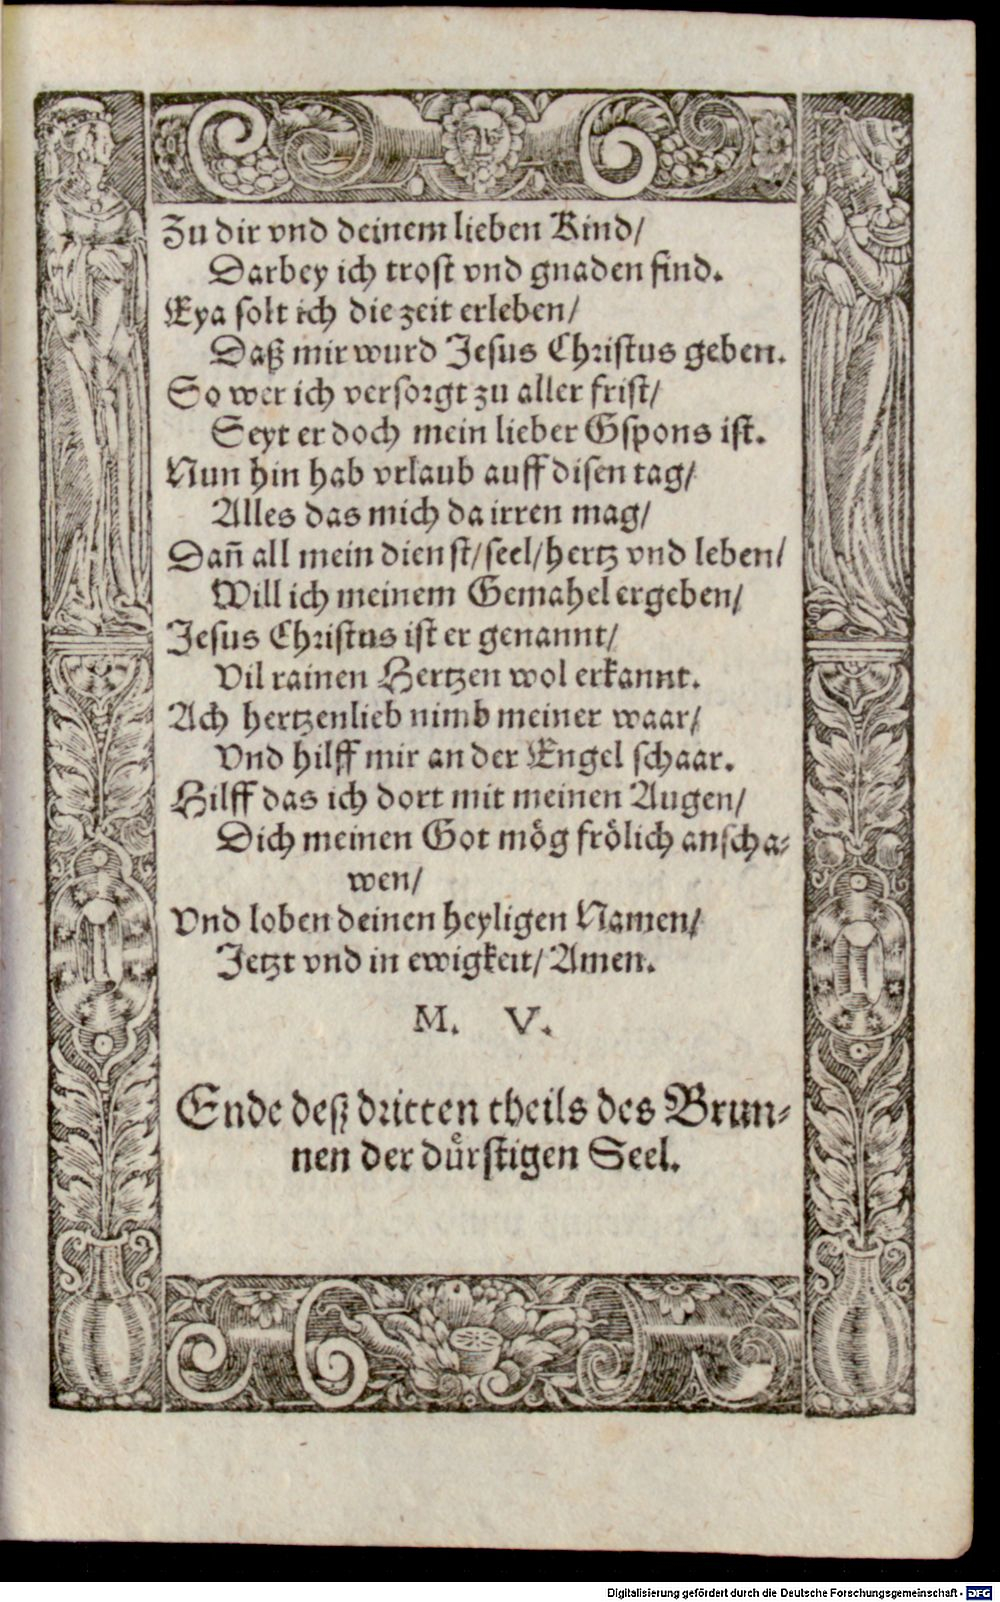 Zu dir vnd deinem lieben Kind/
Darbey ich trost vnd gnaden find.
Eya solt ich die zeit erleben/
Daß mir wurd Jesus Christus geben.
So wer ich versorgt zu aller frist/
Seyt er doch mein lieber Gspons ist.
Nun hin hab vrlaub auff disen tag/
Alles das mich da irren mag/
Dañ all mein dienst/seel/hertz vnd leben/
Will ich meinem Gemahel ergeben/
Jesus Christus ist er genannt/
Vil rainen Hertzen wol erkannt.
Ach hertzenlieb nimb meiner waar/
Vnd hilff mir an der Engel schaar.
Hilff das ich dort mit meinen Augen/
Dich meinen Got mög frölich anscha-
wen/
Vnd loben deinen heyligen Namen/
Jetzt vnd in ewigkeit/Amen.
M. V.
Ende deß dritten theils des Brun-
nen der duͤrstigen Seel.
Digitalisierung gefördert durch die Deutsche Forschungsgemeinschaft - DFG